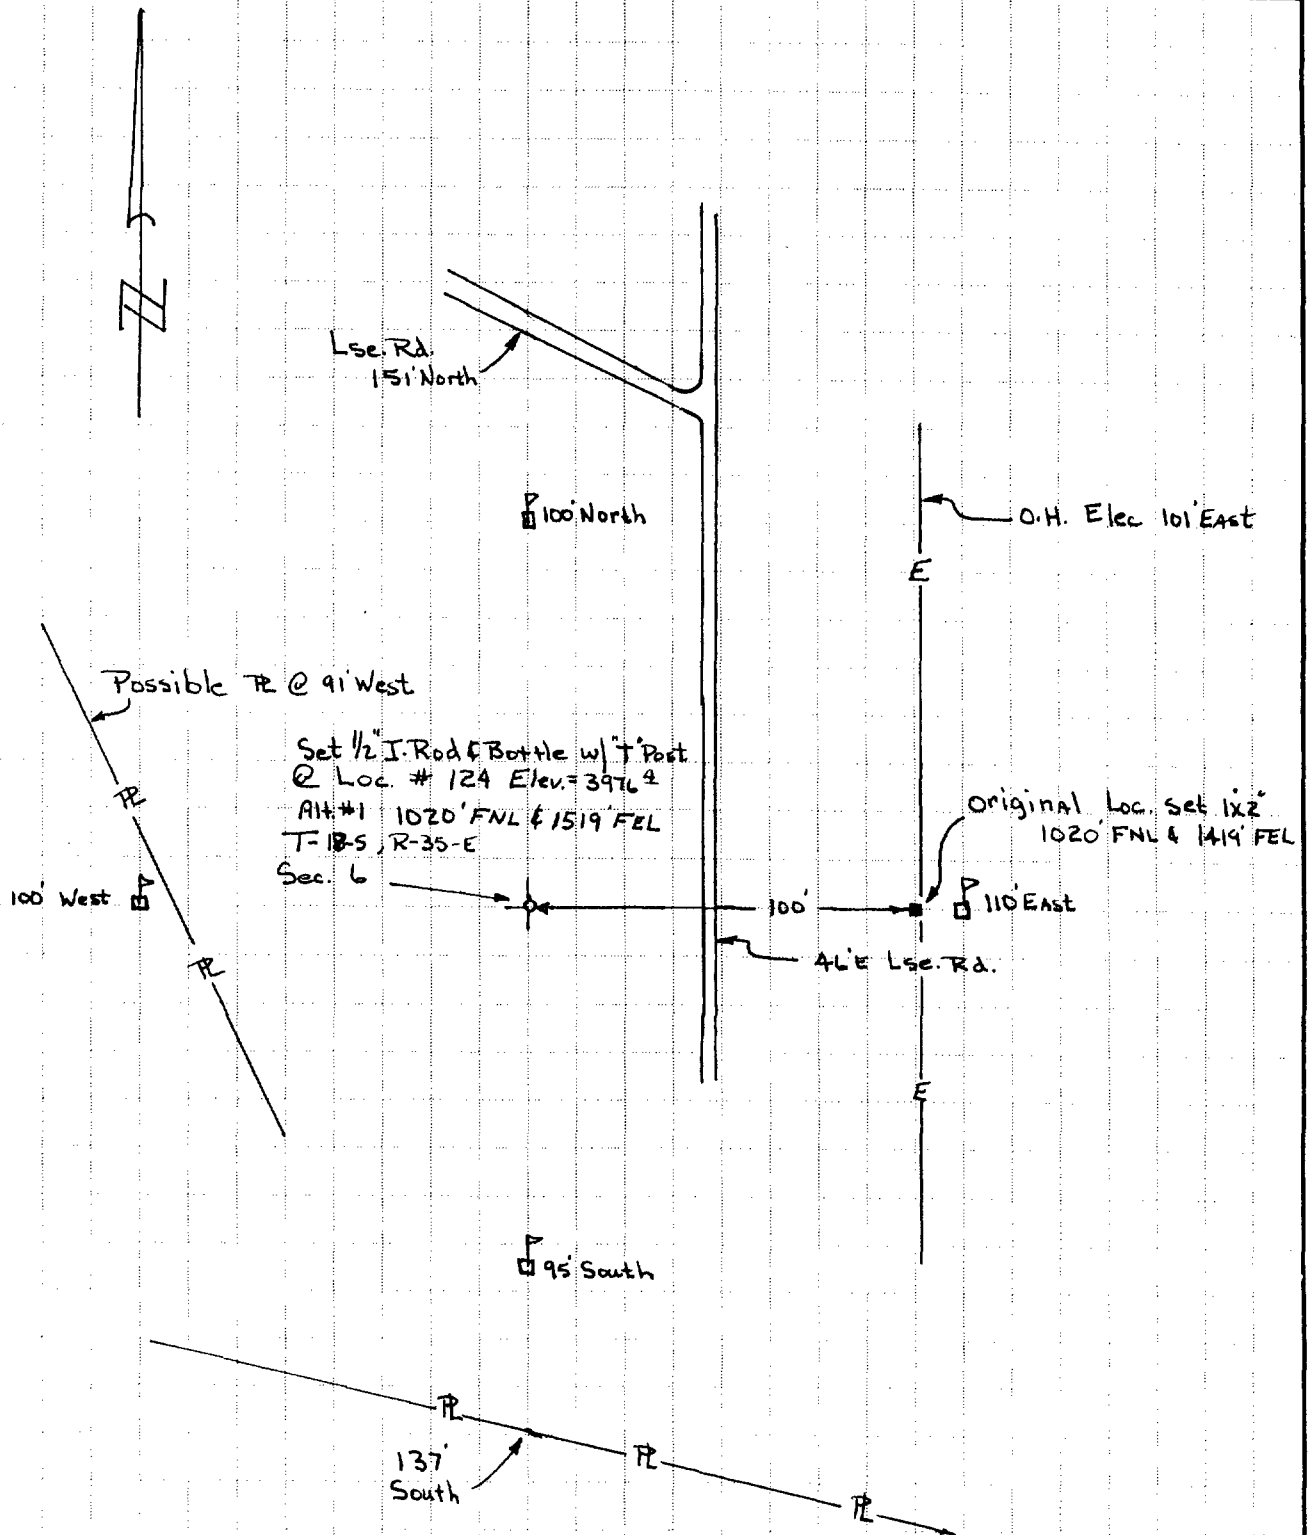 N
Lse. Rd.
151' North
100' North
O.H. Elec 101' East
E
Possible PL @ 91' West
PL
Set 1/2" I. Rod & Bottle w/ "T" Post
@ Loc. # 124 Elev. = 3976
Alt #1 1020' FNL & 1519' FEL
T-18-S, R-35-E
Sec. 6
Original Loc. set 1x2"
1020' FNL & 1419' FEL
100' West
100'
110' East
46' E Lse. Rd.
PL
E
95' South
PL
137'
South
PL
PL